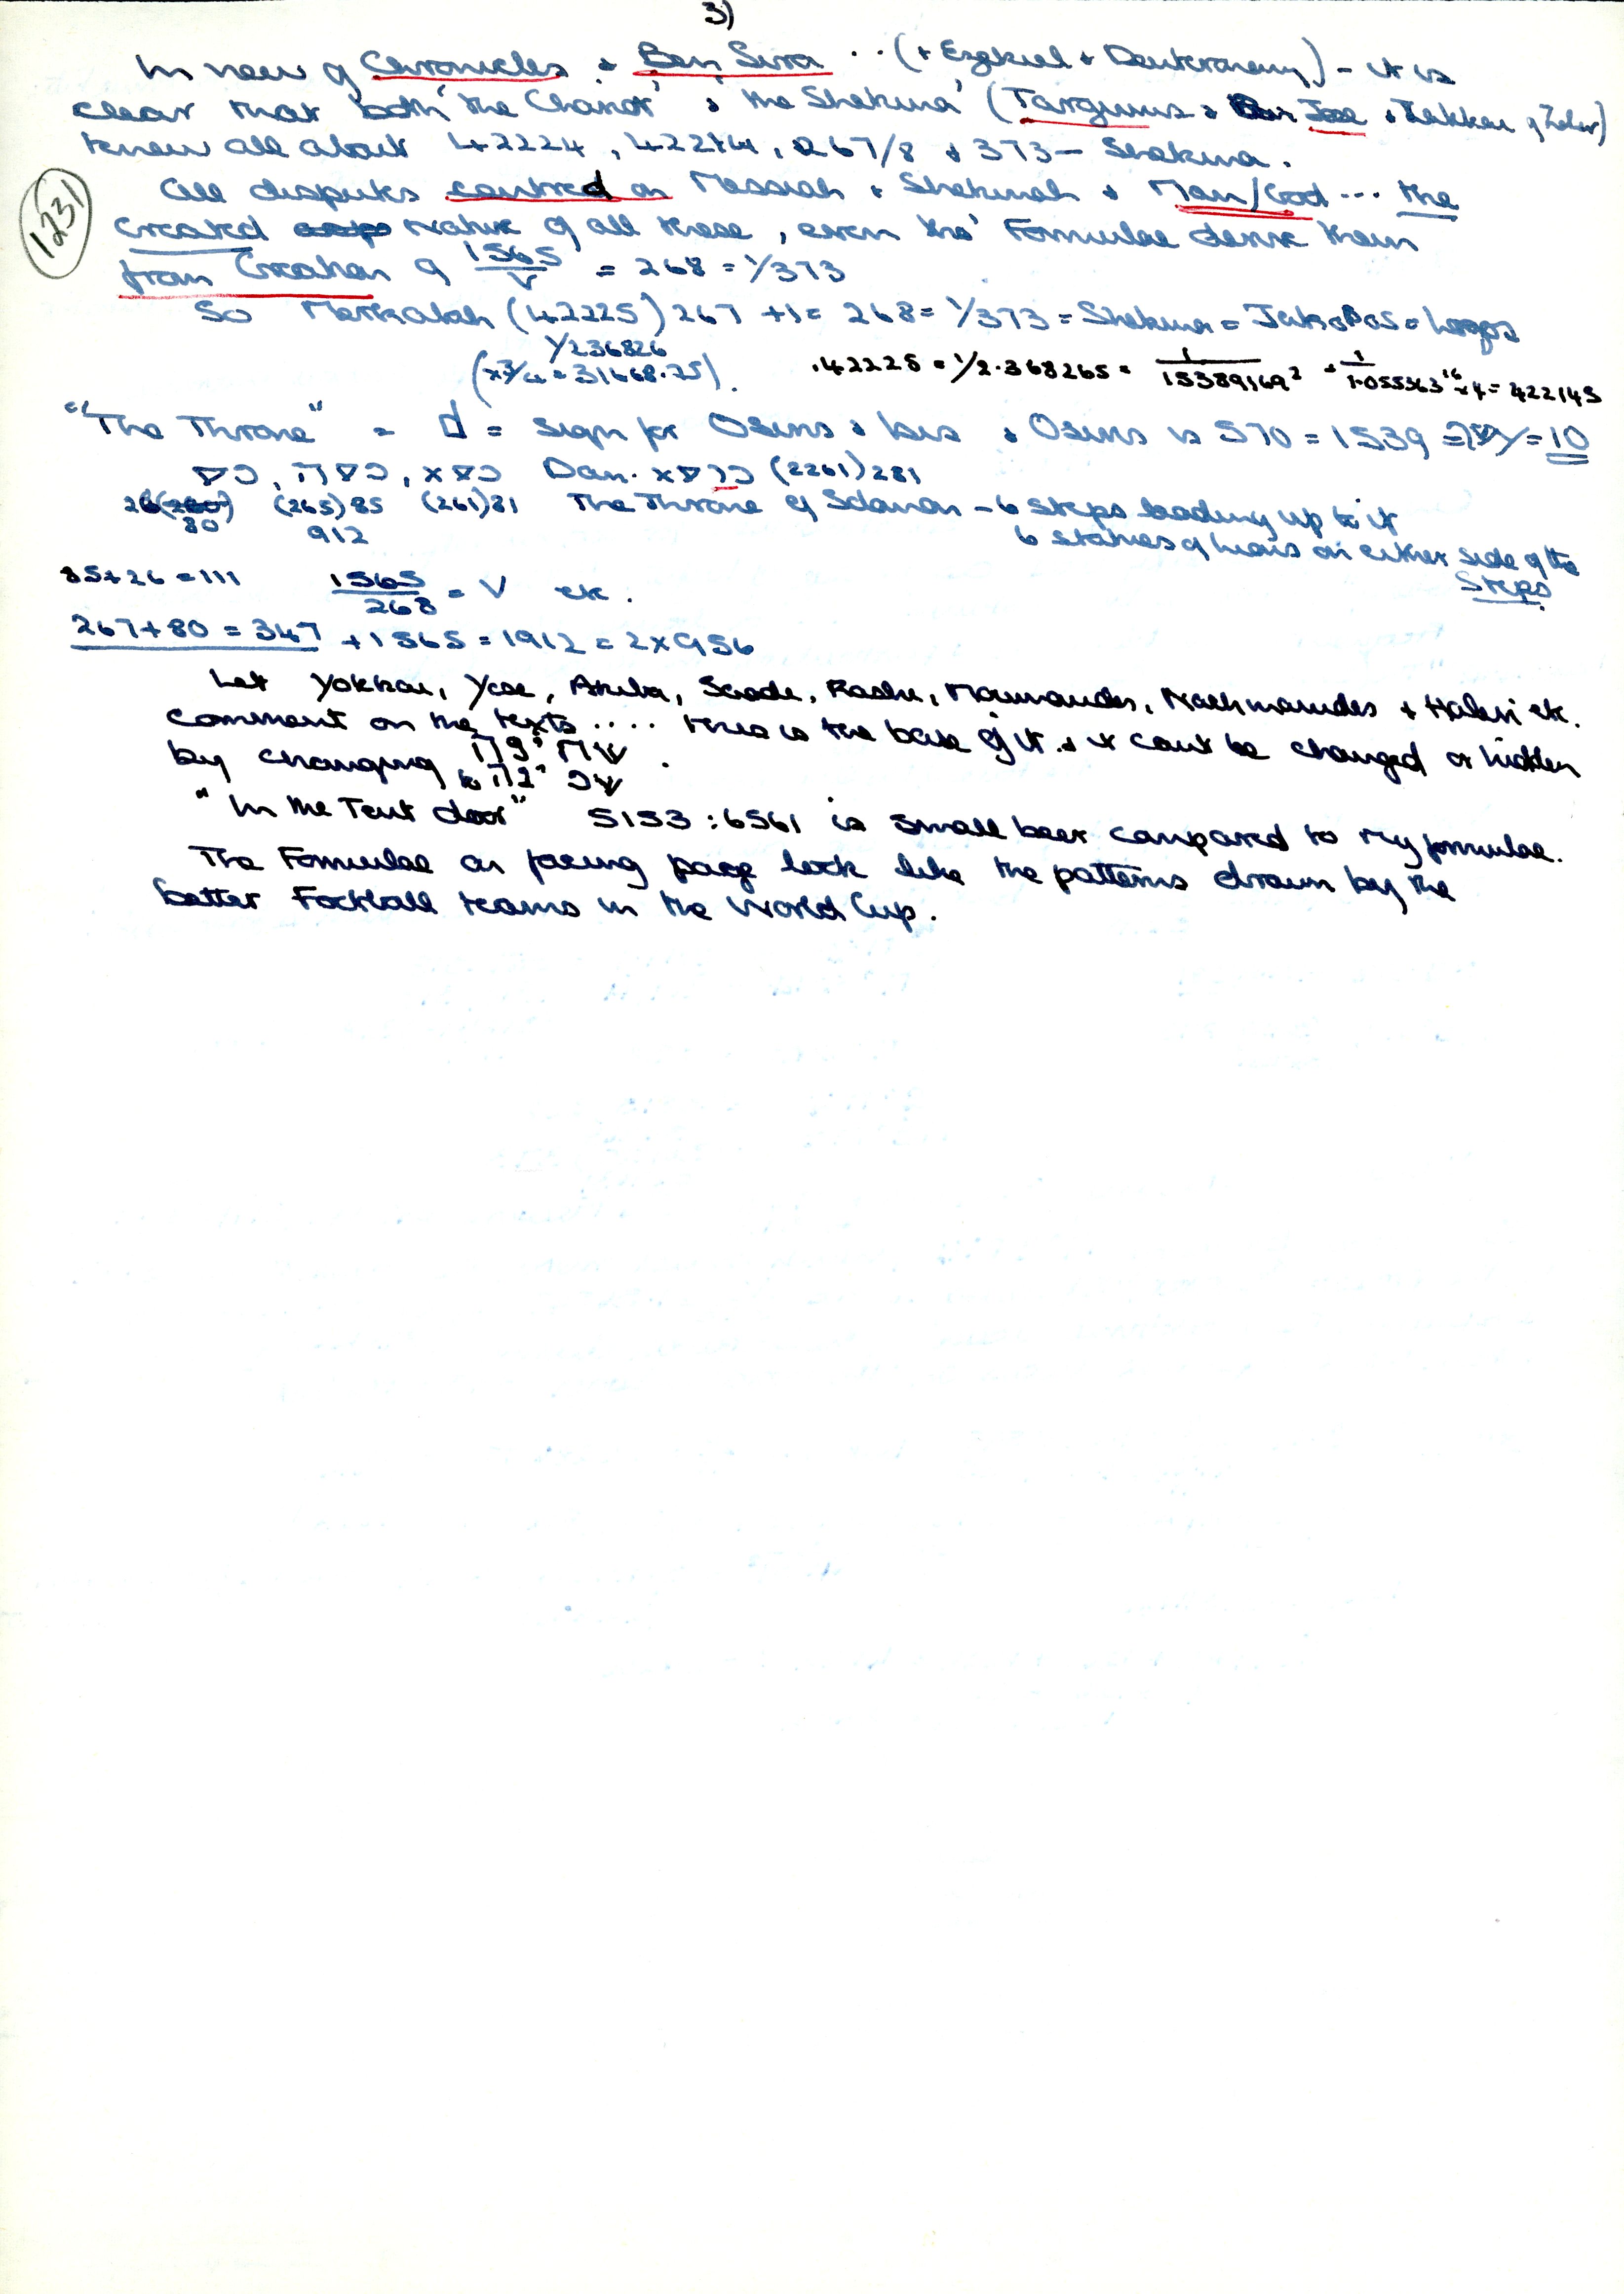 3)
In view of Chronicles & Ben Sira .. (+ Ezekiel + Deuteronomy) - it is
clear that both 'the Chariot' & 'the Shekina' (Targums & Jose & of Zohar)
knew all about 42224, 42214, 267/8 & 373 - Shekina.
1231
All disputes centred on Messiah & Shekinah & Man/God ... the
created nature of all these, even tho' Formulae derive them
from Creation of 1565/V = 268 = 1/373
So Merkabah (42225) 267 +1 = 268 = 1/373 = Shekina = = Logos
1/236826
(x 3/4 = 31668.75).
.42225 = 1/2.368265 = 1/15389169² = 1/1.055563¹⁶ ÷ 4 = 422145
"The Throne" = = sign for Osiris & Isis & Osiris is 570 = 1539 = = 10
Dan. (2261) 281
26 80 (265) 85 (261) 81 The Throne of Solomon - 6 steps leading up to it
912 6 statues of lions on either side of the
Steps.
85+26 = 111 1565/268 = V etc.
267+80 = 347 + 1565 = 1912 = 2 x 956
Let Yokkai, Yose, Akiba, Saadi, Rashi, Maimonides, Nachmanides + Halevi etc.
comment on the texts .... this is the base of it & it can't be changed or hidden
by changing to
"In the Tent door" 5153 : 6561 is small beer compared to my formulae.
The Formulae on facing page look like the patterns drawn by the
better Football teams in the World Cup.